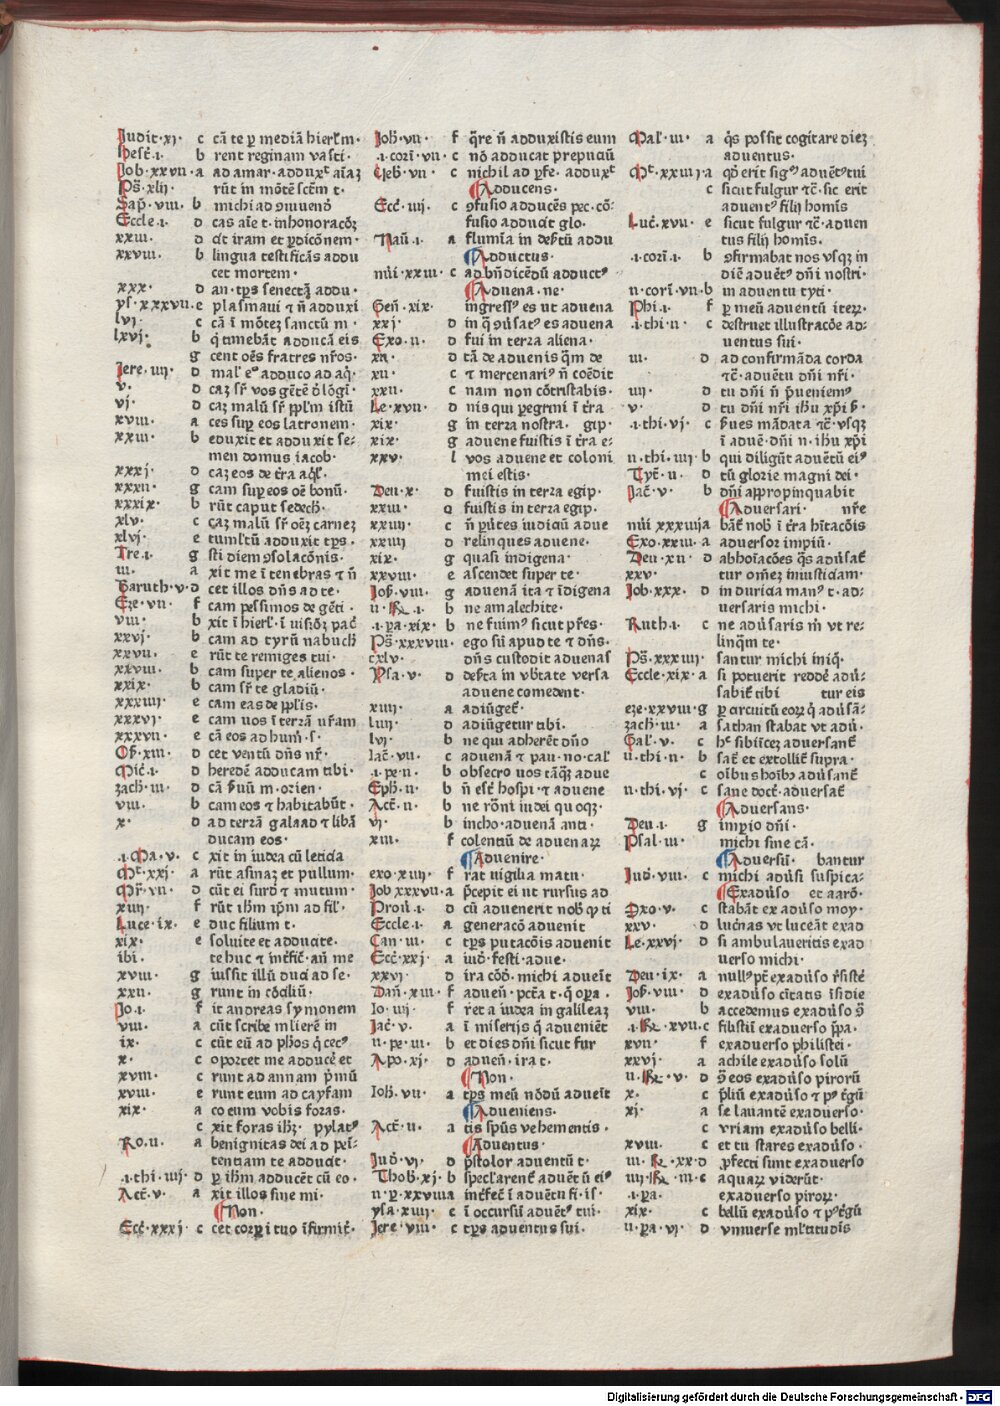 Judit·xi· c cã te ꝑ mediã hierłm·
Hest̃·i· b rent reginam vasti·
Job·xxvii·a ad amar·adduxᶜ aĩaʒ
Ps̃·xlij rũt in mõtẽ sc̃tm̃ t·
Sap̃·viii· b michi ad ꝯviuenð
Eccle·i· d cas aĩe t·inhonoracõʒ
xxiii· d cit iram et ꝑdicõnem·
xxviii· b lingua testificãs addu
cet mortem·
xxx· d an·tp̃s senectã addu·
ys·xxxvii·e plasmaui ⁊ ñ adduxi
lvi· c cã ĩ mõteʒ sanctũ m·
lxvj· b q̃ timebãt adducã eis
g cent oẽs fratres nr̃os·
Jere·iiij· d mał eᵍ adduco ad aq̃·
v· d caʒ sr̃ vos gẽtẽ ð lõgĩ·
vj· d caʒ malũ sr̃ pp̃łm istũ
xviii· a ces suꝑ eos latronem·
xxiii· b eduxit et adduxit se-
men domus iacob·
xxxj· d caʒ eos de t̃ra aq̃ł·
xxxii· g cam suꝑ eos oẽ bonũ·
xxxix· b rũt caput sedech̃·
xlv· c caʒ malũ sr̃ oẽʒ carneʒ
xlvj· e tumłtũ adduxit tp̃s·
Tre·i· g sti diem ꝯsolacõnis·
iii· a xit me ĩ tenebras ⁊ ñ
Baruth·v·d cet illos dñs ad te·
Eze·vii· f cam pessimos de gẽti·
viii· b xit ĩ hierł·ĩ uisiõʒ pac̃
xxvj· b cam ad tyrũ nabuch̃
xxvii· e rũt te remiges tui·
xxviii· b cam super te alienos·
xxix· b cam sr̃ te gladiũ·
xxxiiij· e cam eas de pp̃lis·
xxxvj· e cam uos ĩ terrã ur̃am
xxxvii· e cã eos ad hum̃·s·
Os̃·xiii· d cet ventũ dñs nr̃·
Mic̃·i· d heredẽ adducam tibi·
zach·iii· d cã ẜuũ m·orien·
viii· b cam eos ⁊ habitabũt·
x· d ad terrã galaad ⁊ libã
ducam eos·
·i·Ma·v· c xit in iudea cũ leticia
Mᶜ·xxj· a rũt asinaʒ et pullum·
Mr̃·vii· d cũt ei surð ⁊ mutum·
xiiij· f rũt ihm̃ ip̃m ad fił·
Luce·ix· e duc filium t·
xix· e soluite et adducite·
ibi· te huc ⁊ int̃fic̃·añ me
xviii· g iussit illũ duci ad se·
xxii· g runt in cõciliũ·
Jo·i· f it andreas symonem
viii· a cũt scribe mlierẽ in
ix· c cũt eũ ad ph̃os q̃ cecᵍ
x· c oportet me adducẽ et
xviii· c runt ad annam p̃mũ
xviii· e runt eum ad cayfam
xix· a co eum vobis foras·
c xit foras ihʒ· pylatᵍ
Ro·ii· a benignitas dei ad pẽi-
tentiam te adducit·
·i·thi·iiij· d ꝑ ihm̃ adducẽt cũ eo·
Act̃·v· a xit illos sine mi·
Non·
Ecc̃·xxxj· c cet corꝑi tuo ĩfirmit̃·
Joh̃·vii· f q̃re ñ adduxistis eum
·i·cori·vii· c nõ adducat prepuciũ
Heb̃·vii· c nichil ad ꝑfe·adduxᶜ
Adducens·
Ecc̃·iiij· c ꝯfusio adducẽs pec·cõ-
fusio adducit glo·
Naũ·i· a flumĩa in deẜtũ addu
Adductus·
nũi·xxiii· c ad bñdicẽdũ adductᵍ
Advena·ne·
Geñ·xix· ingressᵍ es ut aduena
xxj· d in q̃ ꝯũsatᵍ es aduena
Exo·ii· d fui in terra aliena·
xii· d tã de aduenis q̃m de
xii· c ⁊ mercenariᵍ ñ coẽdit
xxii· c nam non cõtristabis·
Le·xvii· d nis qui ꝑegrini ĩ t̃ra
xix· g in terra nostra· gip·
xix· g aduene fuistis ĩ t̃ra e·
xxv· l vos aduene et coloni
mei estis·
Deu·x· d fuistis in terra egip·
xxiii· d fuistis in terra egip·
xxiiij· c ñ ꝑũtes iudiciũ adue
xxiiij d relinques aduene·
xix· g quasi indigena·
xxviii· e ascendet super te·
Jos̃·viii· g aduenã ita ⁊ ĩdigena
ii·R̃·i· b ne amalechite·
·i·pa·xix· b ne fuimᵍ sicut pr̃es·
Ps̃·xxxviii· ego sũ apud te ⁊ dñs·
cxlv· dñs custodit aduenas
Ysa·v· d deẜta in vb̃tate versa
aduene comedent·
xiiij a adiũget̃·
lvi· d adiũgetur tibi·
lvj· b ne qui adheret dño
lac̃·vii· c aduenã ⁊ pau·no·cał
·i·pe·ii· b obsecro uos tãq̃ʒ adue
Eph·ii· b ñ est̃ hospi·⁊ aduene
Act̃·ii· b ne rõni iudei quoqʒ·
vj· b incho·aduenã anti·
xiii· f colentiũ de aduenaꝝ
Advenire·
exo·xiij· f rat uigilia matu·
Job xxxvii·a p̃cepit ei ut rursus ad
Prou·i· d cũ aduenerit nob̃ q̃ ti
Eccle·i· a generacõ aduenit
Can·iii· c tp̃s putacõis aduenit
Ecc̃·xxj· a iuð·festi·adue·
xxvj· d ira cõð·michi adueit
Dañ·xiii· f adueñ·pct̃a t·q̃ oꝑa·
Jo·iiij· f ret a iudea in galileaʒ
Jac̃·v· a ĩ miserijs q̃ adueniẽt
ii·pe·iii· b et dies dñi sicut fur
Apo·xj· d adueñ·ira t·
Non·
Joh̃·vii· a tp̃s meũ nõdũ aduẽit
Adueniens·
Act̃·ii· a tis sp̃us vehementis·
Aduentus·
Juð·vj· d p̃stolor aduentũ t·
Thob·xj· b specłarent̃ aduẽtũ eiᵍ
ii·ꝑ·xxviii a int̃fec̃ ĩ aduẽtu fi·is̃·
ysa·xiij· c ĩ occursũ aduẽtᵍ tui·
Jere·viii· c tp̃s aduentus sui·
Mał·iii· a q̃s possit cogitare dieʒ
aduentus·
Mᶜ·xxiiij·a qð erit sigᵍ aduẽtᵍ tui
c sicut fulgur ⁊c̃·sic erit
aduentᵍ filij homĩs
Luc̃·xvii· e sicut fulgur ⁊c̃·aduen
tus filij homĩs·
·i·cori·i· b ꝯfirmabat nos vsqʒ in
diẽ aduẽtᵍ dñi nostri·
ii·cori·vii·b in aduentu tyti·
Phi·i· f ꝑ meũ aduentũ iteꝝ·
·i·thi·ii· c destruet illustracõe ad-
uentus sui·
iii· d ad confirmãda corda
⁊c̃·aduẽtu dñi nr̃i·
iiij· d tu dñi ñ p̃ueniemᵍ
v· d tu dñi nr̃i ihũ xp̃i ẜ·
·i·thi·vj· c ẜues mãdata ⁊c̃·vsqʒ
ĩ aduẽ·dñi n·ihũ xp̃i
ii·thi·iiij·b qui diligũt aduẽtũ eiᵍ
Tyt̃·ii· d tũ glorie magni dei·
Jac̃·v· b dñi appropinquabit
Adversari· nr̃e
nũi xxxiii a bãt̃ nob̃ ĩ t̃ra hĩtacõis
Exo·xxiii·a aduersor impiũ·
Deu·xii· d abhoĩacões q̃s adũsat̃
xxv· tur om̃eʒ iniusticiam·
Job·xxx· d in duricia manᵍ t·ad-
uersaris michi·
Ruth·i· c ne adũsaris m̃ vt re-
linq̃m te·
Ps̃·xxxiiij· santur michi iniq̃·
Eccle·xix·a si potuerit reddẽ adũ-
sabit̃ tibi tur eis
eze·xxviii·g ꝑ circuitũ eoꝝ q̃ adũsã-
zach·iii· a sathan stabat vt adũ·
Gał·v· c hᶜ sibiĩceʒ aduersant̃
ii·thi·ii· b sat̃ et extollit̃ supra·
c oĩbus hoĩbʒ adũsant̃
ii·thi·vj· c sane doct̃·aduersat̃
Adversans·
Deu·i· g imꝑio dñi·
Psal·iii· michi sine cã·
Adversũ· bantur
Jud·viii· c michi adũsi suspica-
Exadũso et aarõ·
Exo·v· c stabãt ex adũso moy·
xxv· d lucñas vt luceãt exad
Le·xxvj· d si ambulaueritis exad
uerso michi·
Deu·ix· a nullᵍ pt̃ exadũso r̃sistẽ
Jos̃·viii· d exadũso ciĩtatis ĩsidie
viii· b accedemus exadũso ꝯ̃
·i·R̃·xvii·c filistiĩ exaduerso p̃a·
xvii· f exaduerso philistei·
xxvj· a achile exadũso solũ
ii·R̃·v· d ꝯ̃ eos exadũso piroꝝũ
x· c p̃liũ exadũso ⁊ pᵍ t̃gũ
xj· a se lauantẽ exaduerso
c vriam exadũso belli·
xviii· c et tu stares exadũso·
iii·R̃·xx·d ꝑfecti sunt exaduerso
iiij·R̃·iii·c aquaꝝ viderũt·
·i·pa· exaduerso piroꝝ·
xix· c bellũ exadũso ⁊ pᵍ t̃gũ
ii·pa·vj· d vniuerse mł̃titudis
Digitalisierung gefördert durch die Deutsche Forschungsgemeinschaft - DFG